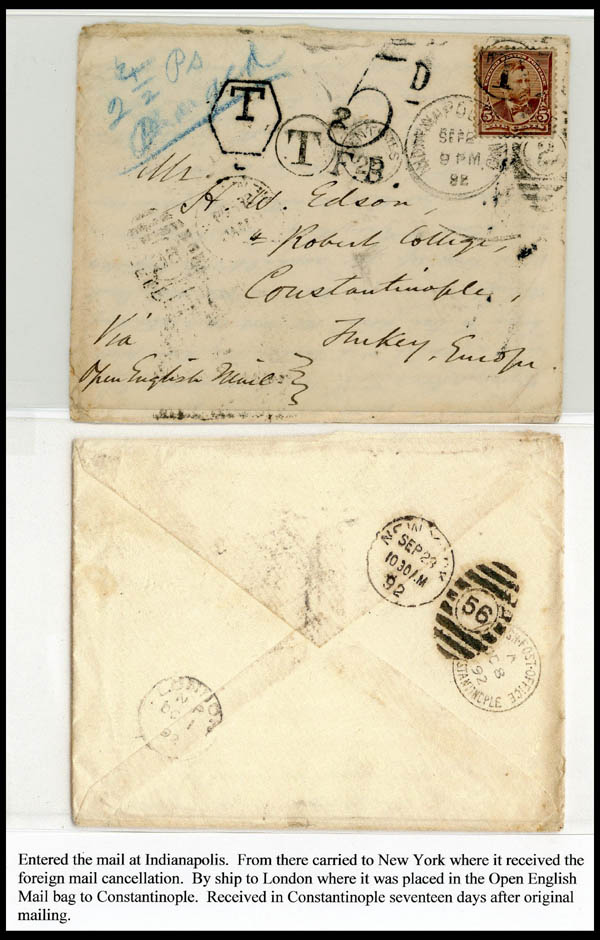 2 Ps
T
T
F2B
2
D
5
5
9 PM
92
Mr.
H. W. Edson,
Robert College,
Constantinople,
Turkey, Europe.
Via
Open English Mail
NEW YORK
SEP 23
10 30 AM
92
56
LONDON
92
POST-OFFICE
92
Entered the mail at Indianapolis. From there carried to New York where it received the
foreign mail cancellation. By ship to London where it was placed in the Open English
Mail bag to Constantinople. Received in Constantinople seventeen days after original
mailing.